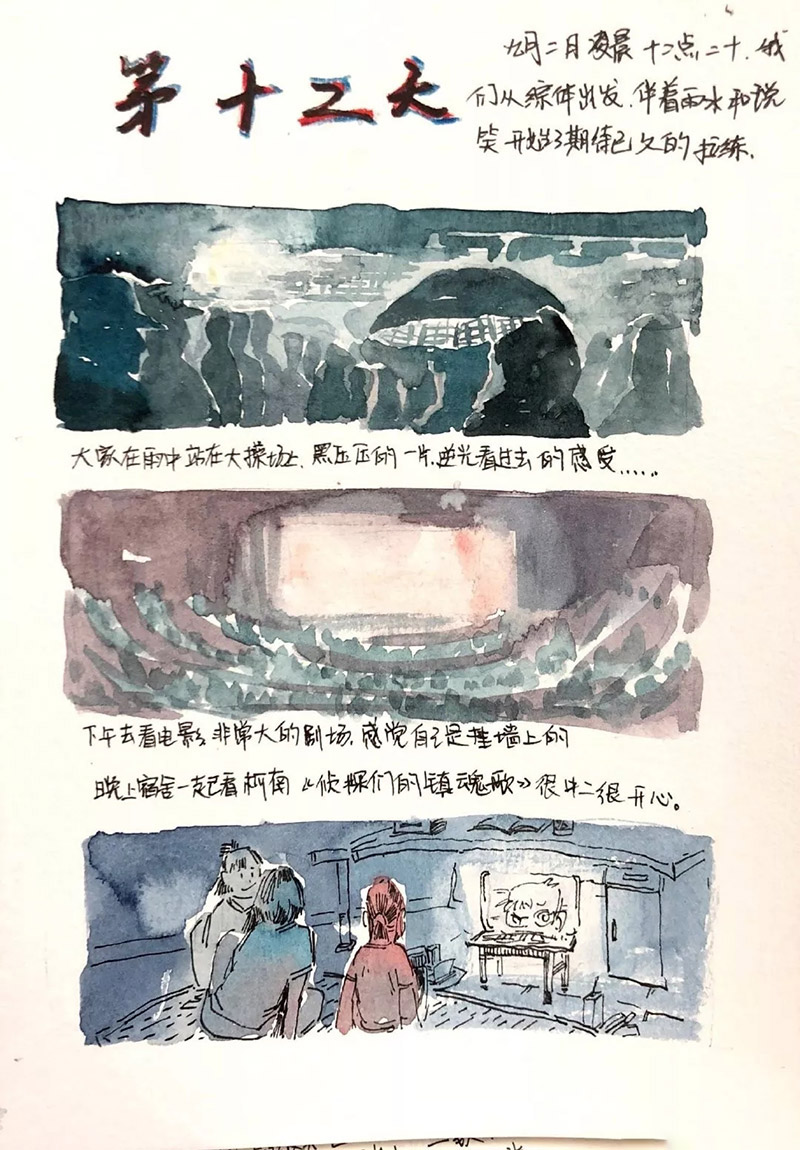 第十二天
九月二日凌晨十二点二十.我
们从综体出发.伴着雨水和说
笑开始了期待已久的拉练.
大家在雨中站在大操场上.黑压压的一片.逆光看过去的感觉......
下午去看电影.非常大的剧场.感觉自己是挂墙上的
晚上宿舍一起看柯南《侦探们的镇魂歌》很中二很开心。